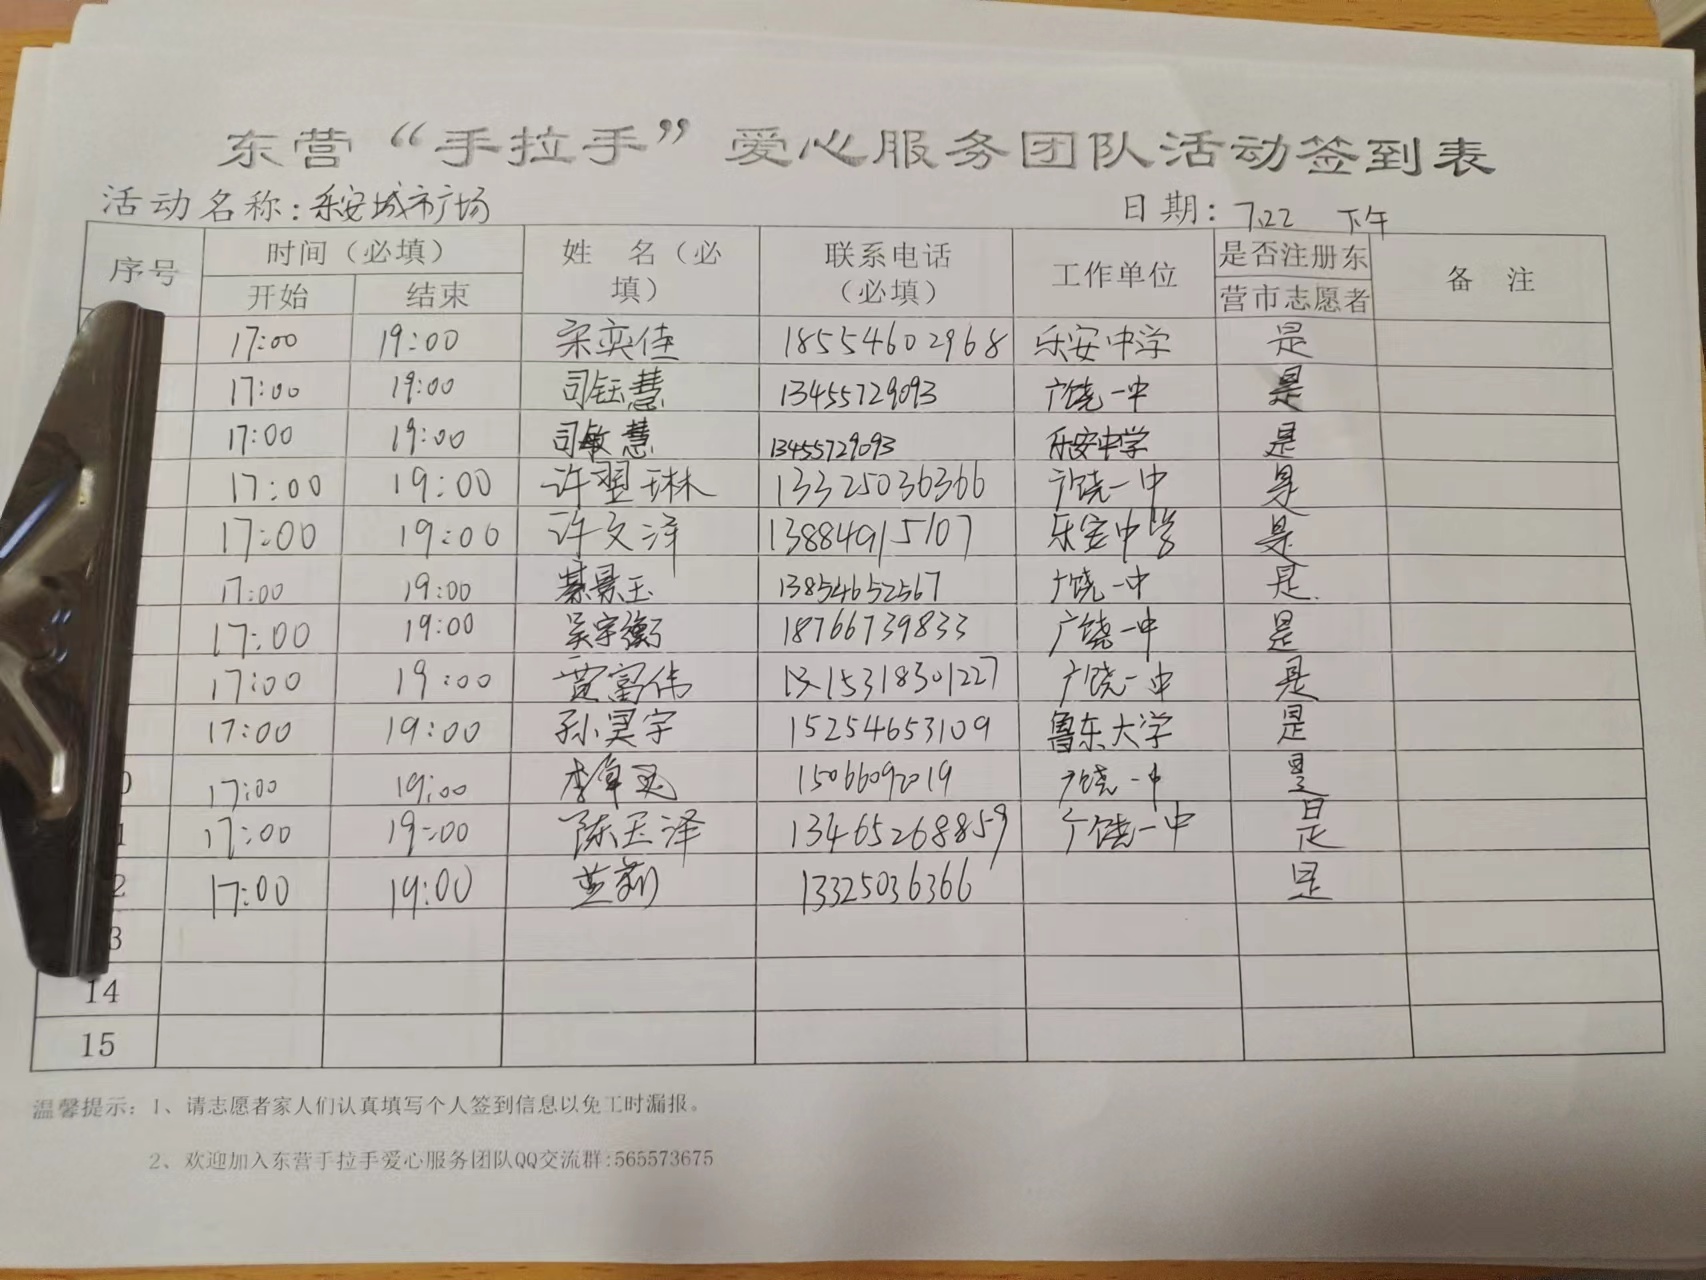 东营“手拉手”爱心服务团队活动签到表
活动名称:乐安城市广场 日期:7.22 下午
序号 时间(必填) 姓 名(必填) 联系电话(必填) 工作单位 是否注册东营市志愿者 备 注
开始 结束
17:00 19:00 宋奕佳 18554602968 乐安中学 是
17:00 19:00 司钰慧 13455729093 广饶一中 是
17:00 19:00 司敏慧 13455729093 乐安中学 是
17:00 19:00 许翌琳 13325036366 广饶一中 是
17:00 19:00 许文泽 13884915107 乐安中学 是
17:00 19:00 綦景玉 13854652567 广饶一中 是
17:00 19:00 吴宇衡 18766739833 广饶一中 是
17:00 19:00 贾富伟 15318301227 广饶一中 是
17:00 19:00 孙昊宇 15254653109 鲁东大学 是
0 17:00 19:00 李 15066092019 广饶一中 是
1 17:00 19:00 陈玉泽 13465268859 广饶一中 是
2 17:00 19:00 13325036366 是
3
14
15
温馨提示:1、请志愿者家人们认真填写个人签到信息以免工时漏报。
2、欢迎加入东营手拉手爱心服务团队QQ交流群:565573675